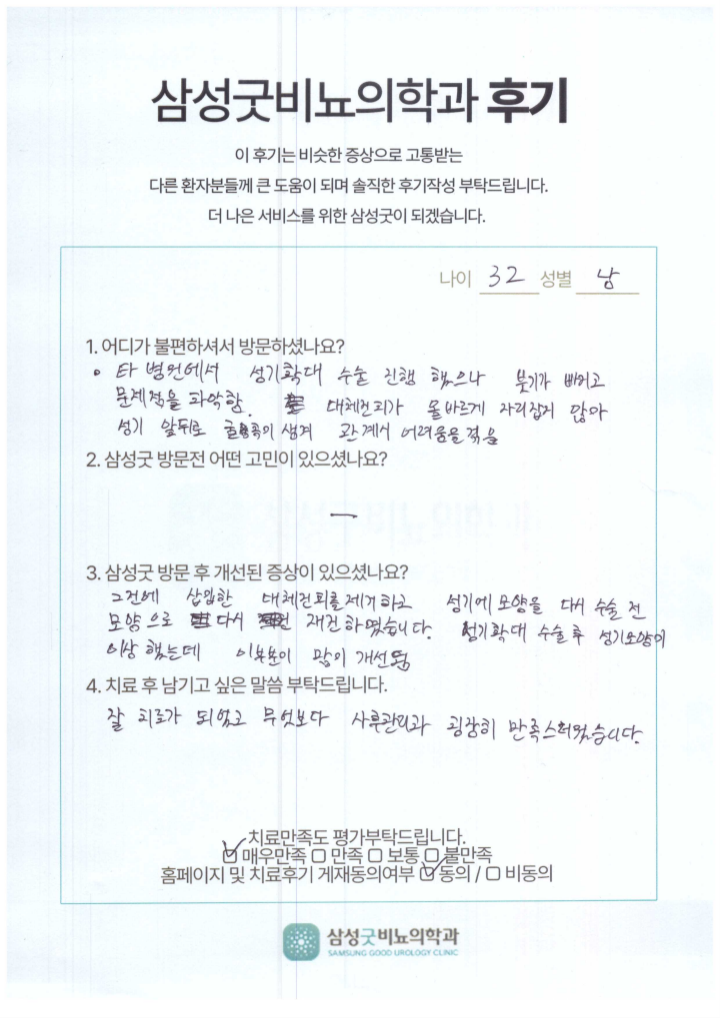 삼성굿비뇨의학과 후기
이 후기는 비슷한 증상으로 고통받는
다른 환자분들께 큰 도움이 되며 솔직한 후기작성 부탁드립니다.
더 나은 서비스를 위한 삼성굿이 되겠습니다.
나이 32 성별 남
1. 어디가 불편하셔서 방문하셨나요?
타 병원에서 성기확대 수술 진행 했으나 붓기가 빠지고
문제점을 파악함. 대체진피가 올바르게 자리잡지 않아
성기 앞뒤로 굴곡이 생겨 관계시 어려움을 겪음
2. 삼성굿 방문전 어떤 고민이 있으셨나요?
—
3. 삼성굿 방문 후 개선된 증상이 있으셨나요?
그전에 삽입한 대체진피를 제거하고 성기에 모양을 다시 수술 전
모양으로 다시 재건하였습니다. 성기확대 수술후 성기모양이
이상 했는데 이부분이 많이 개선됨
4. 치료 후 남기고 싶은 말씀 부탁드립니다.
잘 치료가 되었고 무엇보다 사후관리과 굉장히 만족스러웠습니다.
치료만족도 평가부탁드립니다.
☑ 매우만족 ☐ 만족 ☐ 보통 ☐ 불만족
홈페이지 및 치료후기 게재동의여부 ☑ 동의 / ☐ 비동의
삼성굿비뇨의학과
SAMSUNG GOOD UROLOGY CLINIC